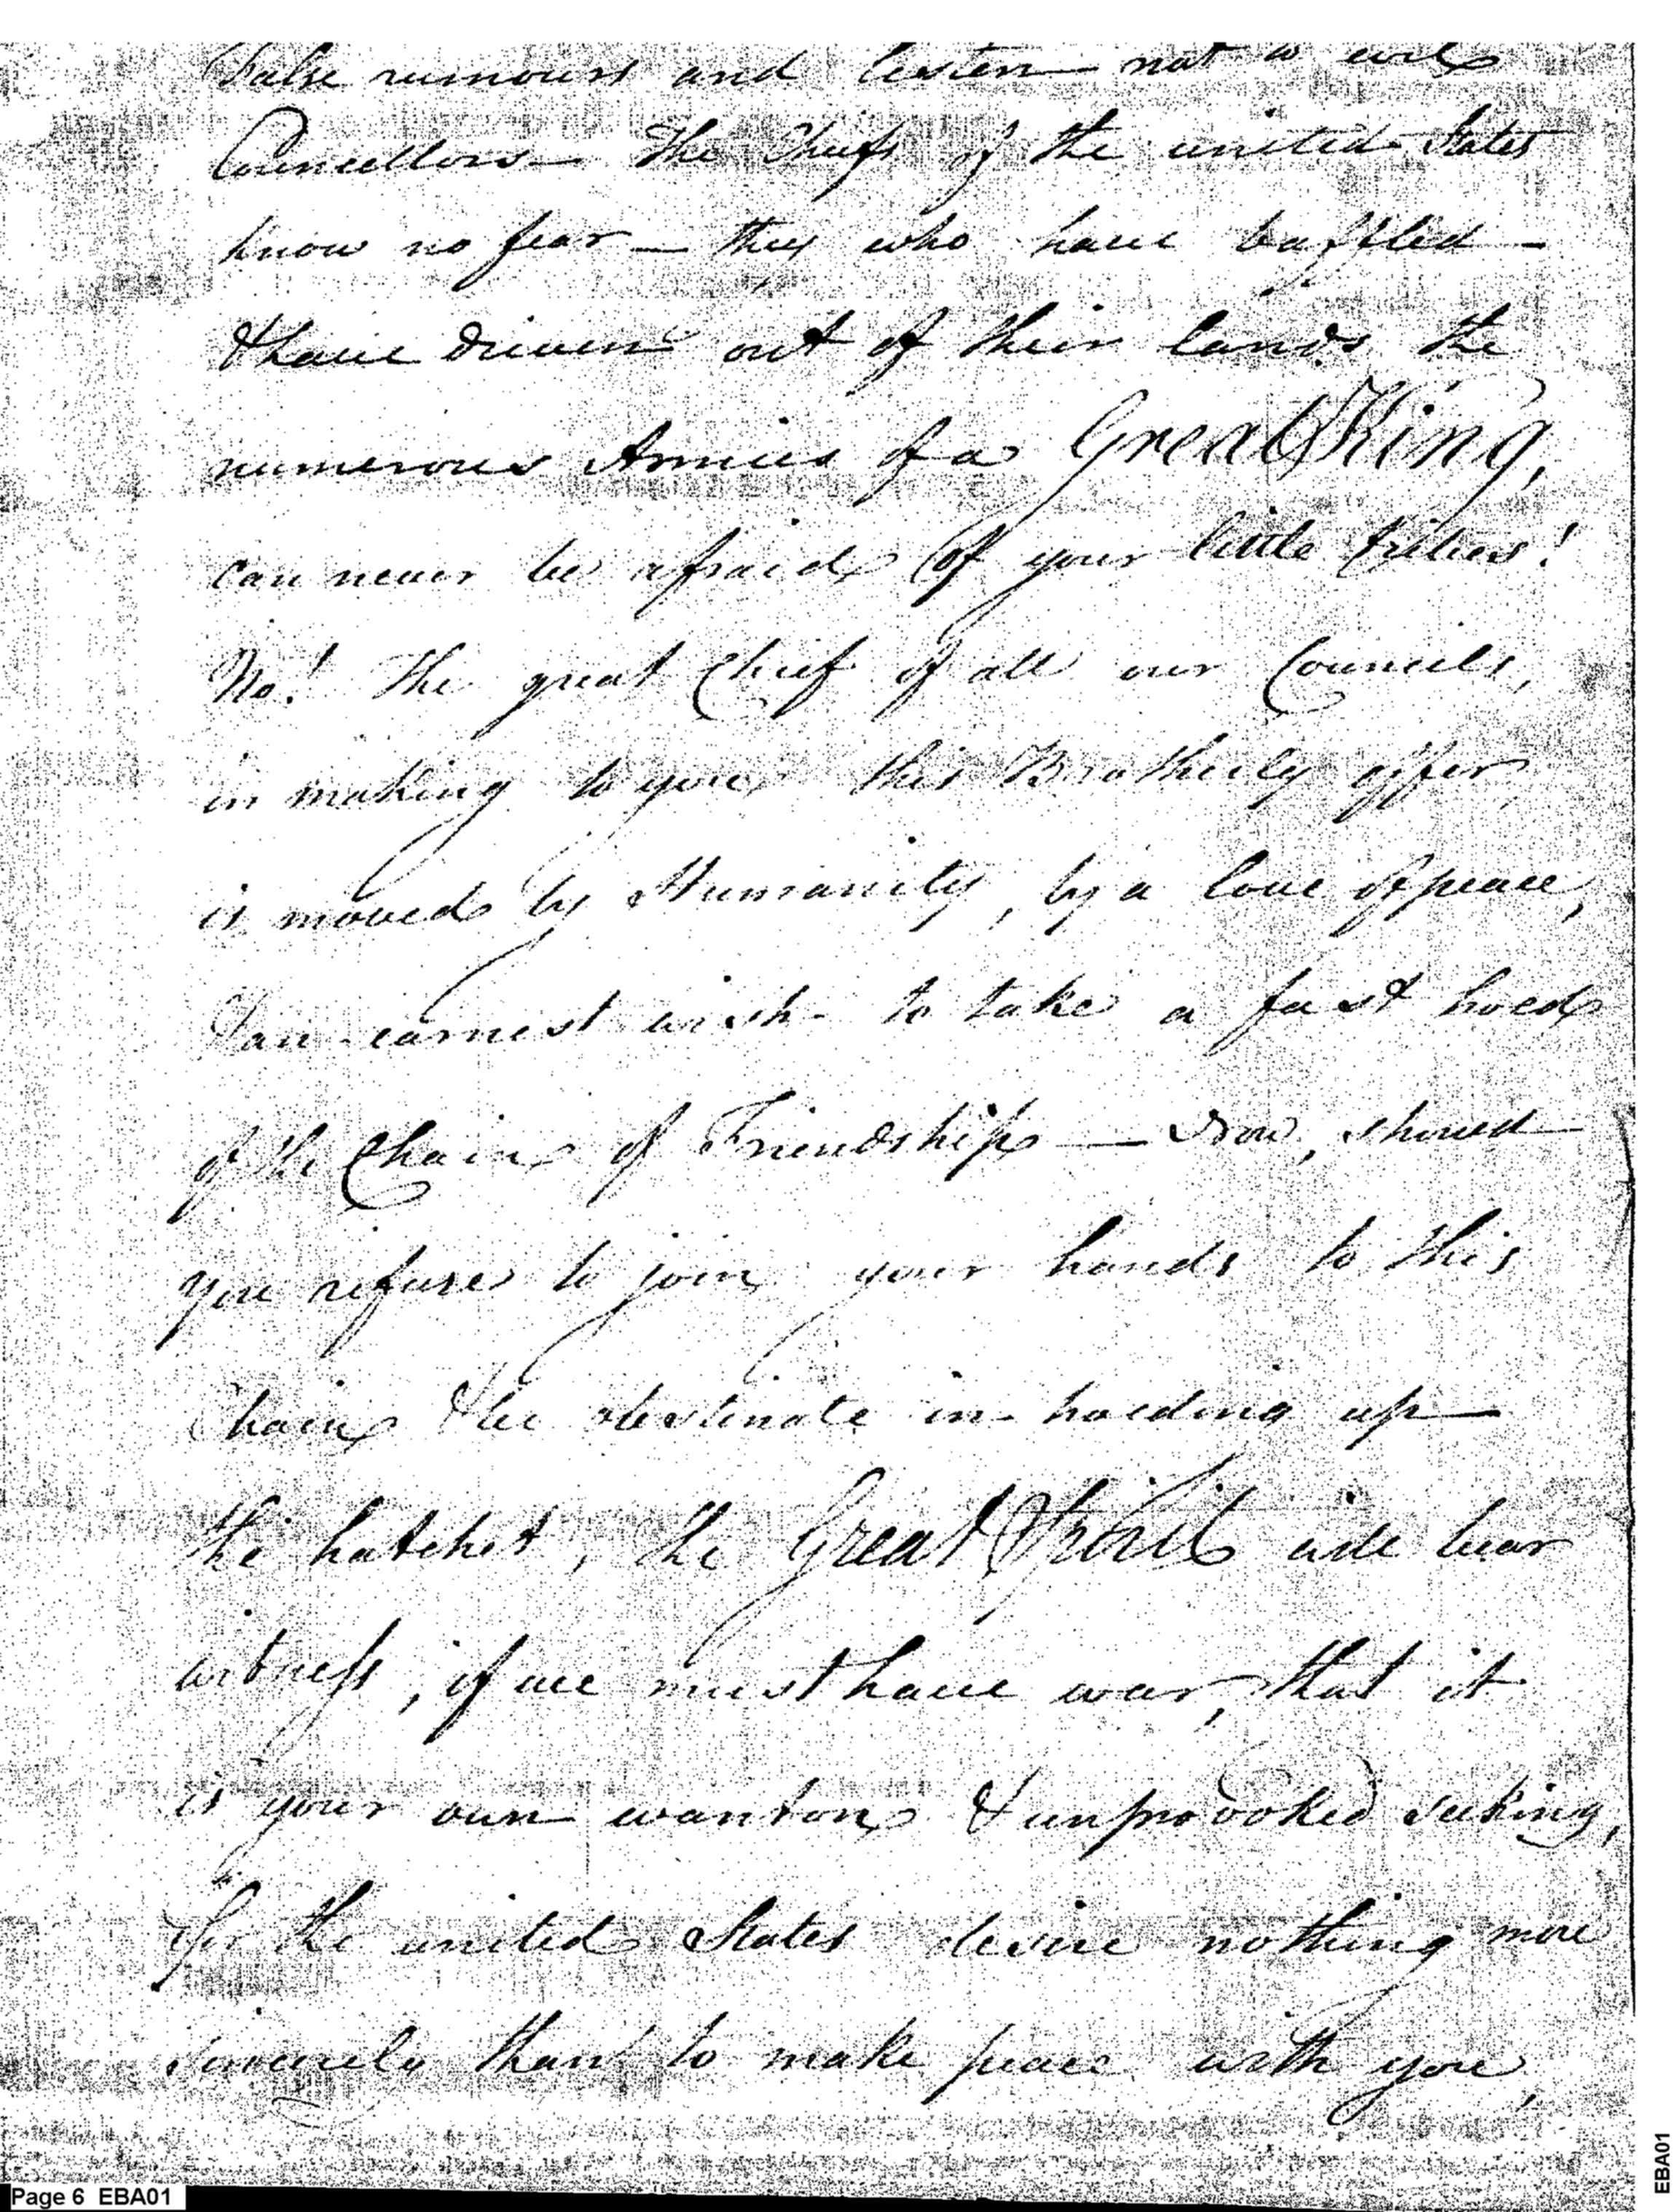 False rumours and listen not to evil
Councellors — The Chiefs of the united States
know no fear — they who have baffled —
& have driven out of their lands the
numerous Armies of a Great King,
can never be afraid of your little tribes!
No! The great Chief of all our Councils,
in making to you this Brotherly offer,
is moved by Humanity, by a love of peace,
& an earnest wish to take a fast hold
of the Chain of Friendship — Now, should
you refuse to join your hands to this
Chain & be obstinate in holding up —
the hatchet, the Great Spirit will bear
witness, if we must have war, that it
is your own wanton & unprovoked seeking,
for the united States desire nothing more
sincerely than to make peace with you,
Page 6 EBA01
EBA01